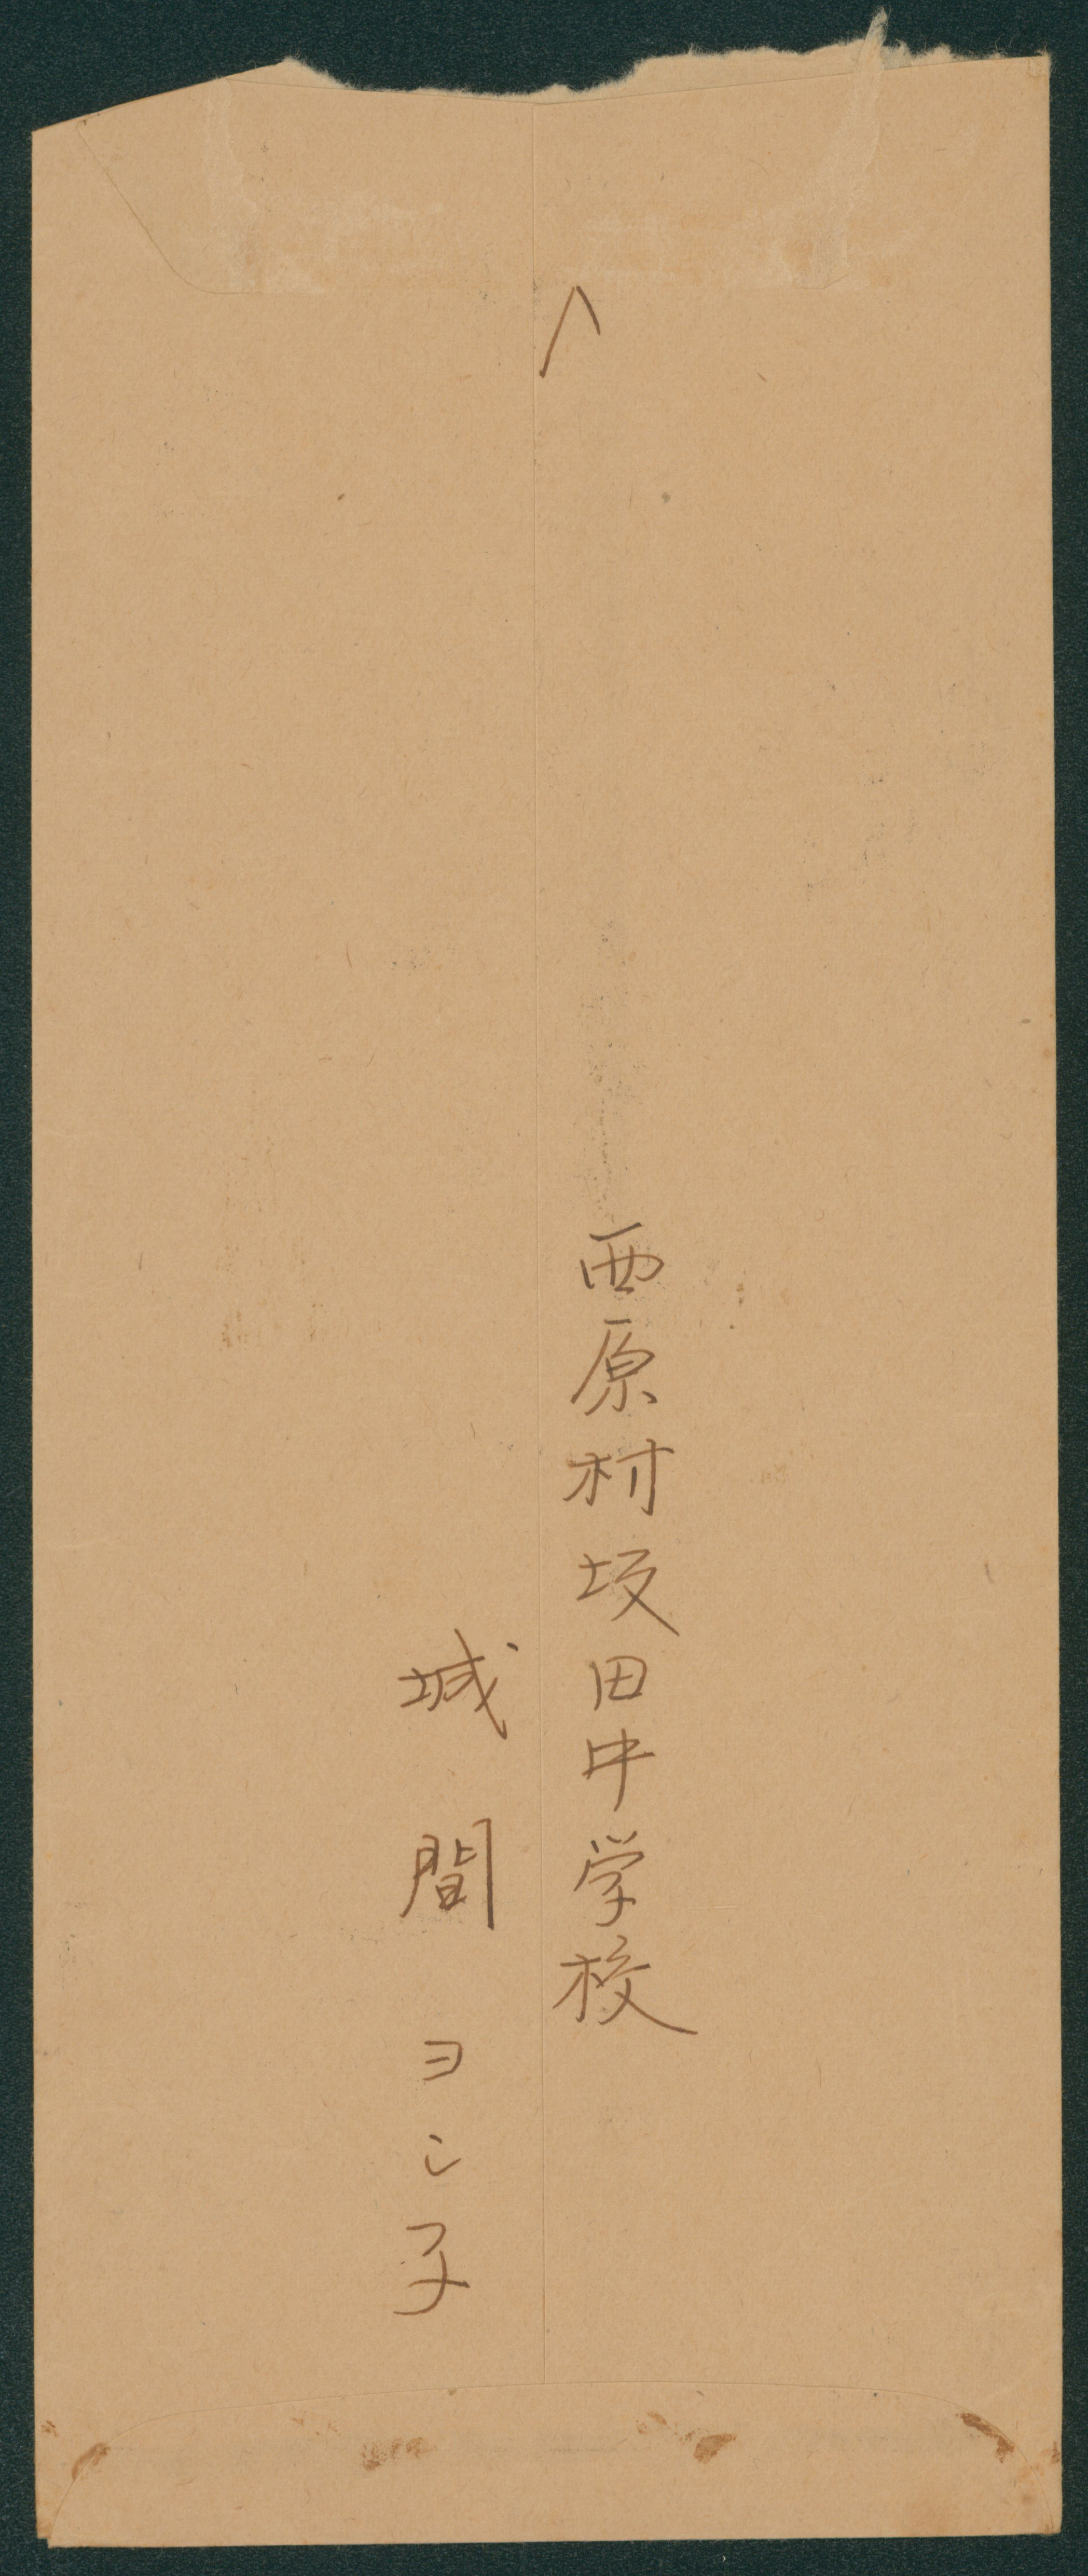 西原村坂田中学校
城間ヨシ子